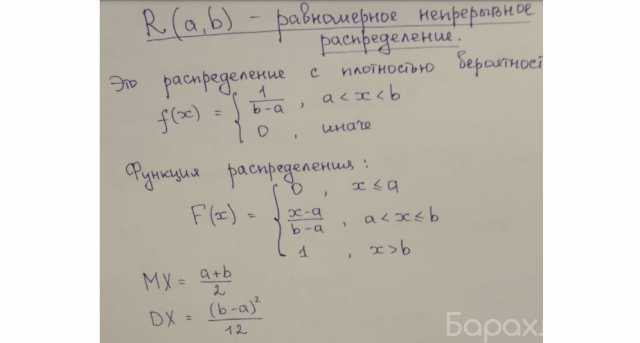 R(a,b) - равномерное непрерывное
распределение.
Это распределение с плотностью вероятност
f(x) = { 1/(b-a) , a < x < b
0 , иначе
Функция распределения:
F(x) = { 0 , x ≤ a
(x-a)/(b-a) , a < x ≤ b
1 , x > b
MX = (a+b)/2
DX = (b-a)²/12
Барахл